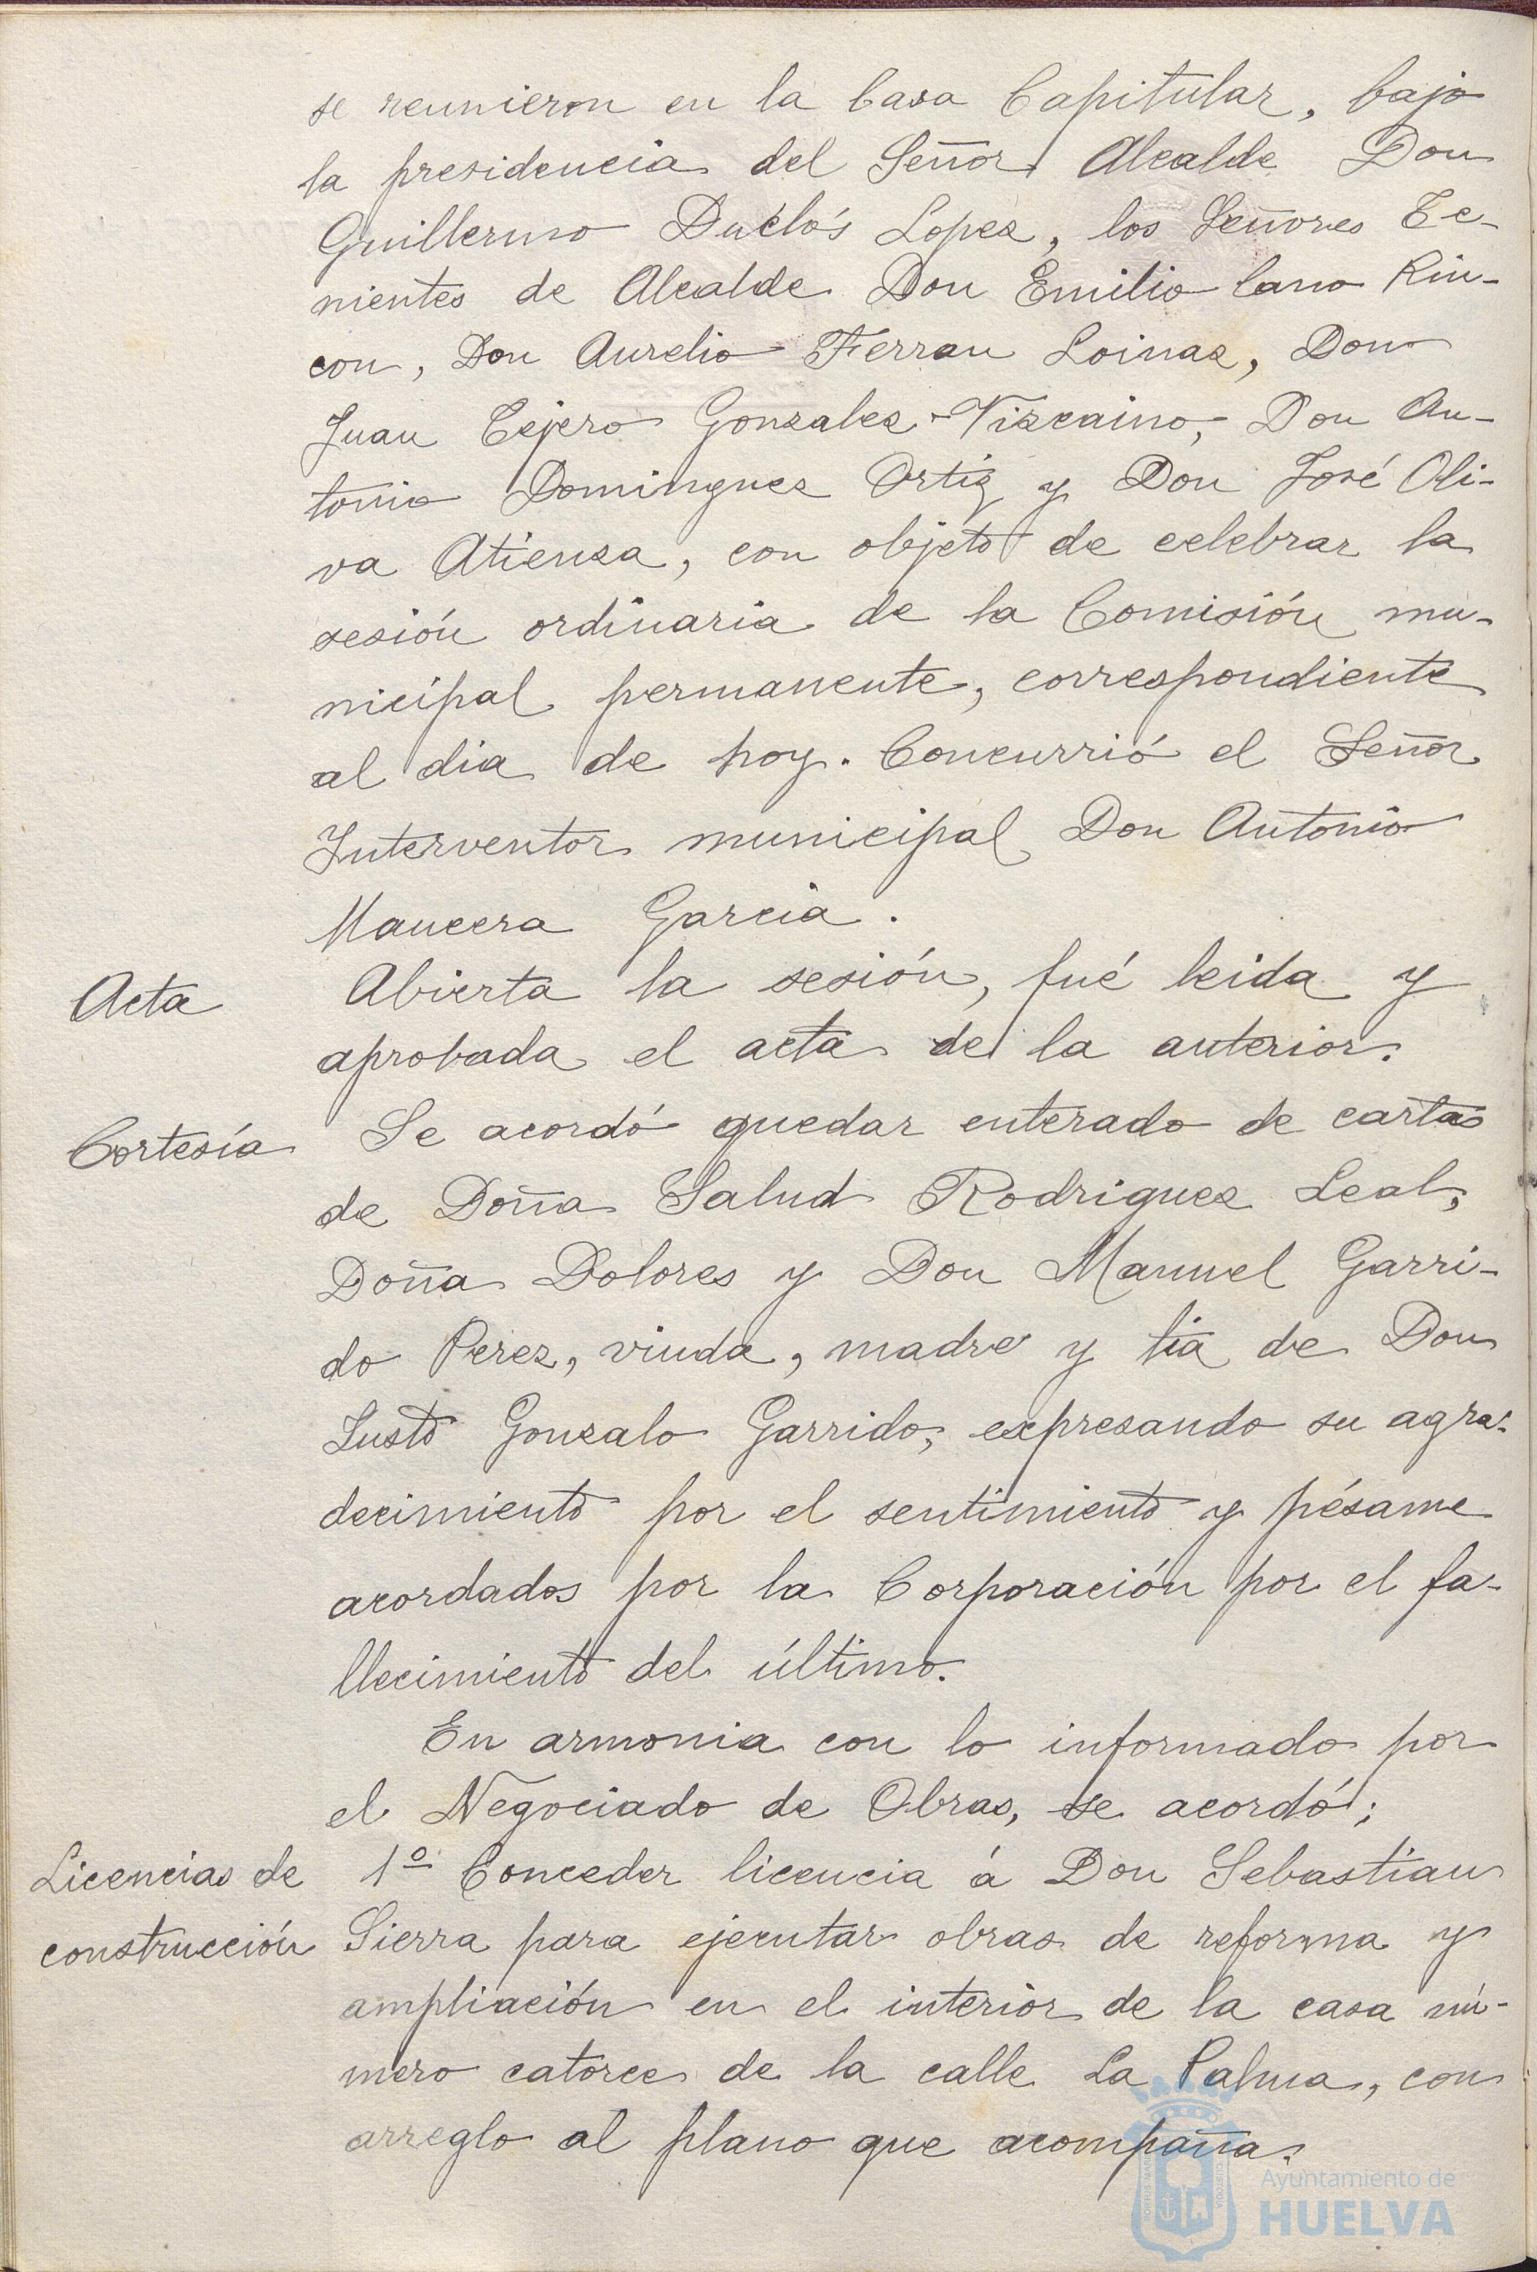 se reunieron en la Casa Capitular, bajo
la presidencia del Señor Alcalde Don
Guillermo Duclós Lopez, los Señores Te-
nientes de Alcalde Don Emilio Cano Rin-
con, Don Aurelio Ferran Loinaz, Don
Juan Tejero Gonzalez-Vizcaino, Don An-
tonio Dominguez Ortiz y Don José Oli-
va Atienza, con objeto de celebrar la
sesión ordinaria de la Comisión mu-
nicipal permanente, correspondiente
al dia de hoy. Concurrió el Señor
Interventor municipal Don Antonio
Mancera Garcia.
Acta
Abierta la sesión, fué leida y
aprobada el acta de la anterior.
Cortesía
Se acordó quedar enterado de cartas
de Doña Salud Rodriguez Leal,
Doña Dolores y Don Manuel Garri-
do Perez, viuda, madre y tia de Don
Justo Gonzalo Garrido, expresando su agra-
decimiento por el sentimiento y pésame
acordados por la Corporación por el fa-
llecimiento del último.
En armonia con lo informado por
el Negociado de Obras, se acordó;
Licencias de
construcción
1º Conceder licencia á Don Sebastian
Sierra para ejecutar obras de reforma y
ampliación en el interior de la casa nú-
mero catorce de la calle La Palma, con
arreglo al plano que acompaña.
Ayuntamiento de
HUELVA